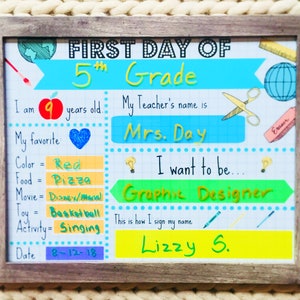 FIRST DAY OF
5th Grade
I am 9 years old
My Teacher's name is
Mrs. Day
My favorite
Color = Red
Food = Pizza
Movie = Disney/Marvel
Toy = Basketball
Activity = Singing
Date 8-12-18
I want to be...
Graphic Designer
This is how I sign my name
Lizzy S.